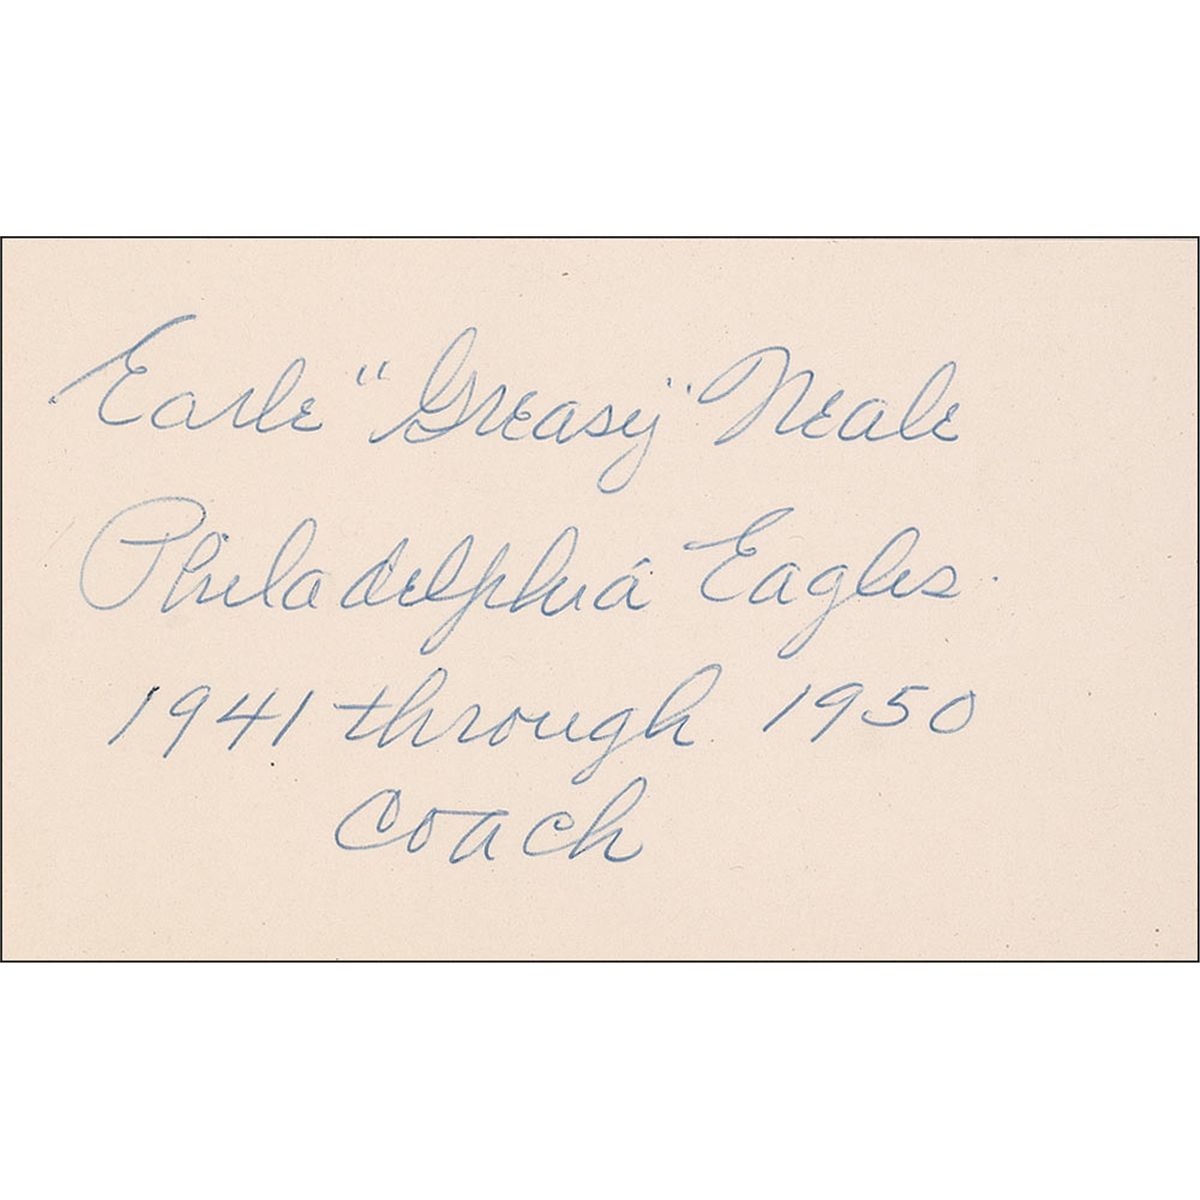 Earle "Greasy" Neale
Philadelphia Eagles.
1941 through 1950
Coach